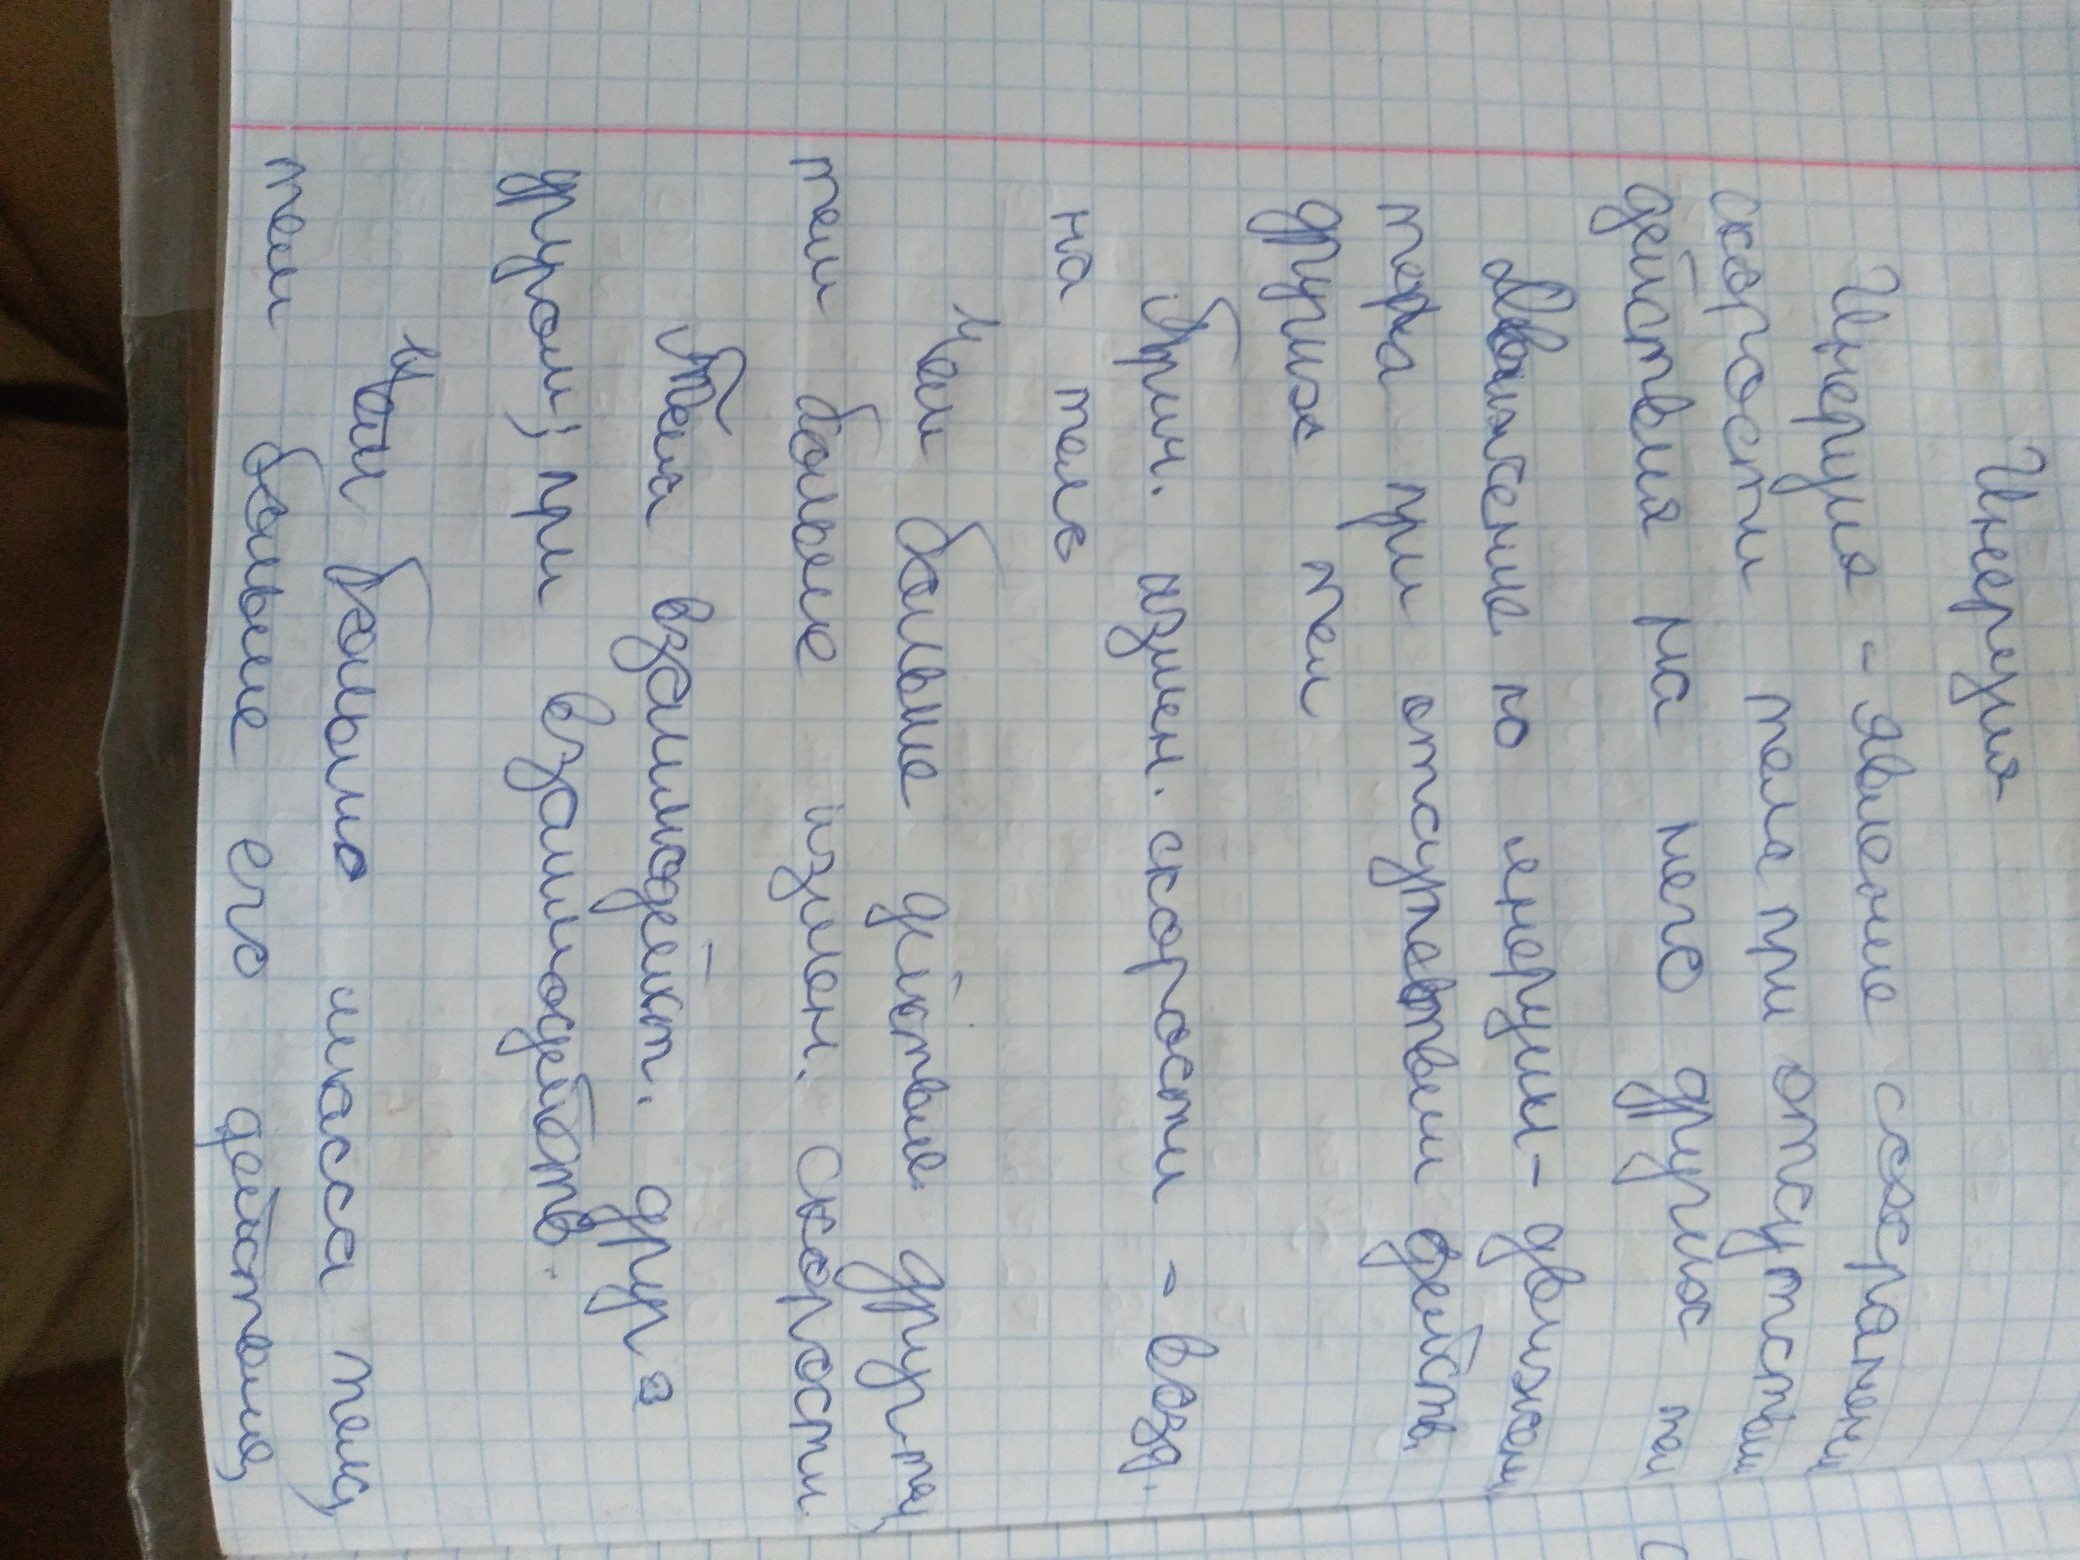 Инерция
Инерция - явление сохранени
скорости тела при отсутствии
действия на него других тел
Движение по инерции - движени
тера при отсутствии действ
других тел
Прич. измен. скорости - возд.
на тело
Чем больше действие друг. тел,
тем больше измен. скорости
Тела взаимодейст. друг с
другом; при взаимодейств.
Чем больше масса тела,
тем больше его действия,